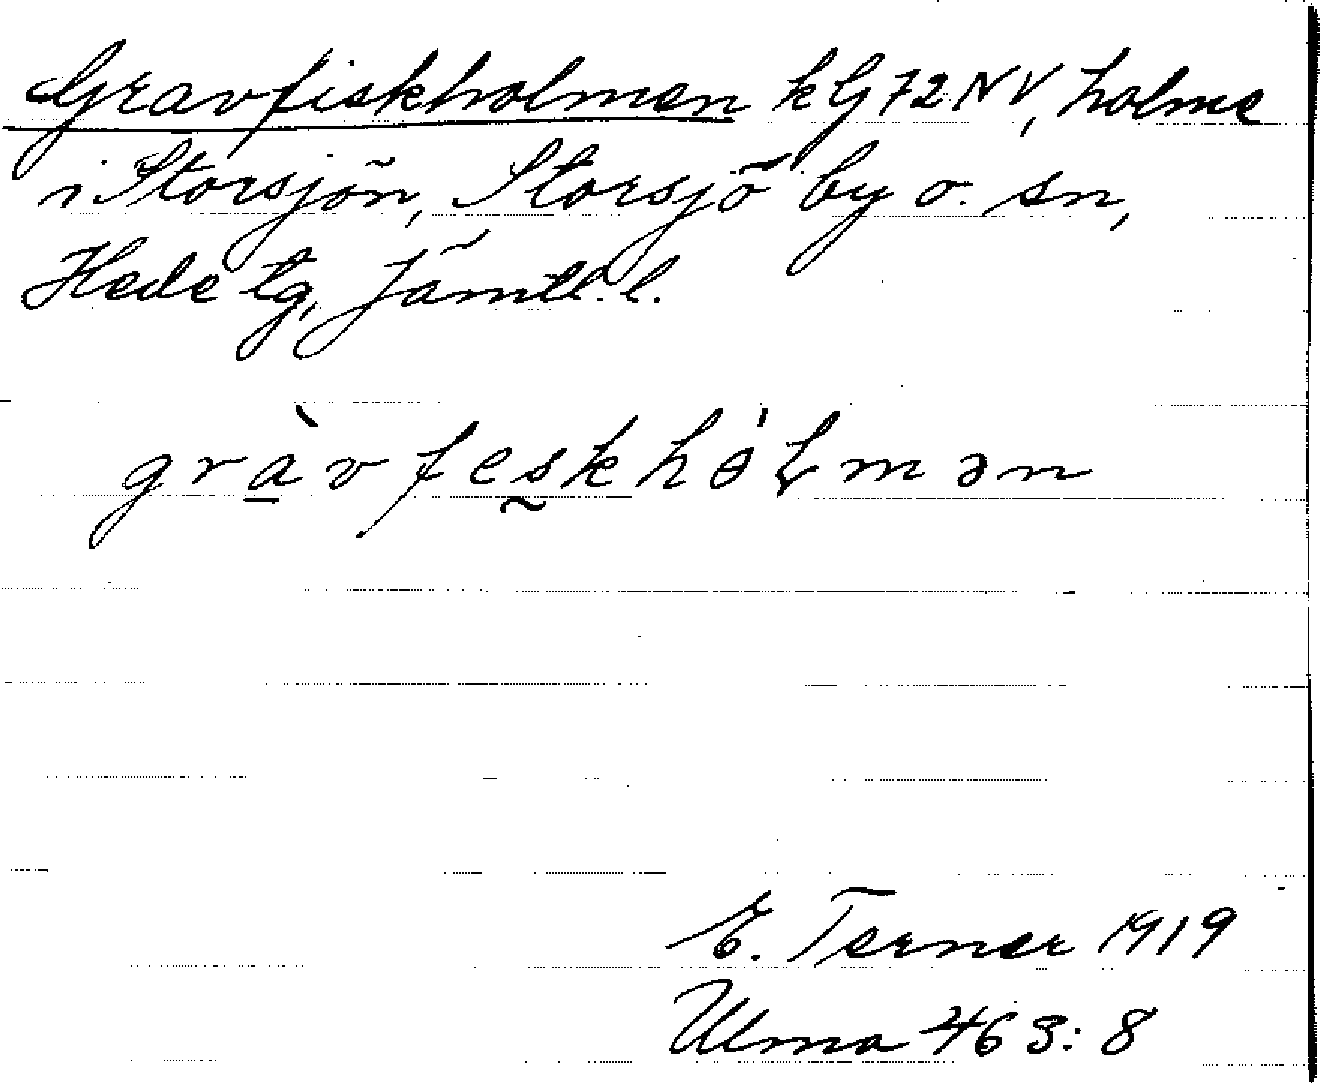 Gravfiskholmen kG72NV, holme
i Storsjön, Storsjö by o. sn,
Hede tg, Jämtl. l.
gràvfeskhɵ́lmən
E. Terner 1919
Ulma 463:8